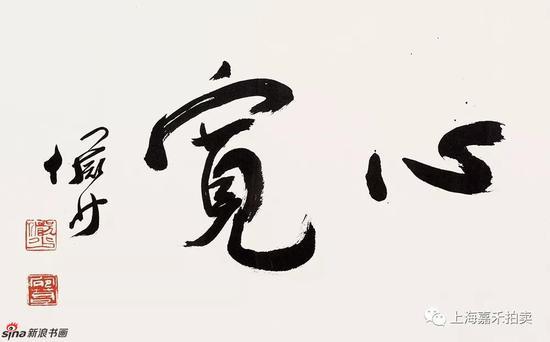 心寬
sina新浪书画
上海嘉禾拍卖